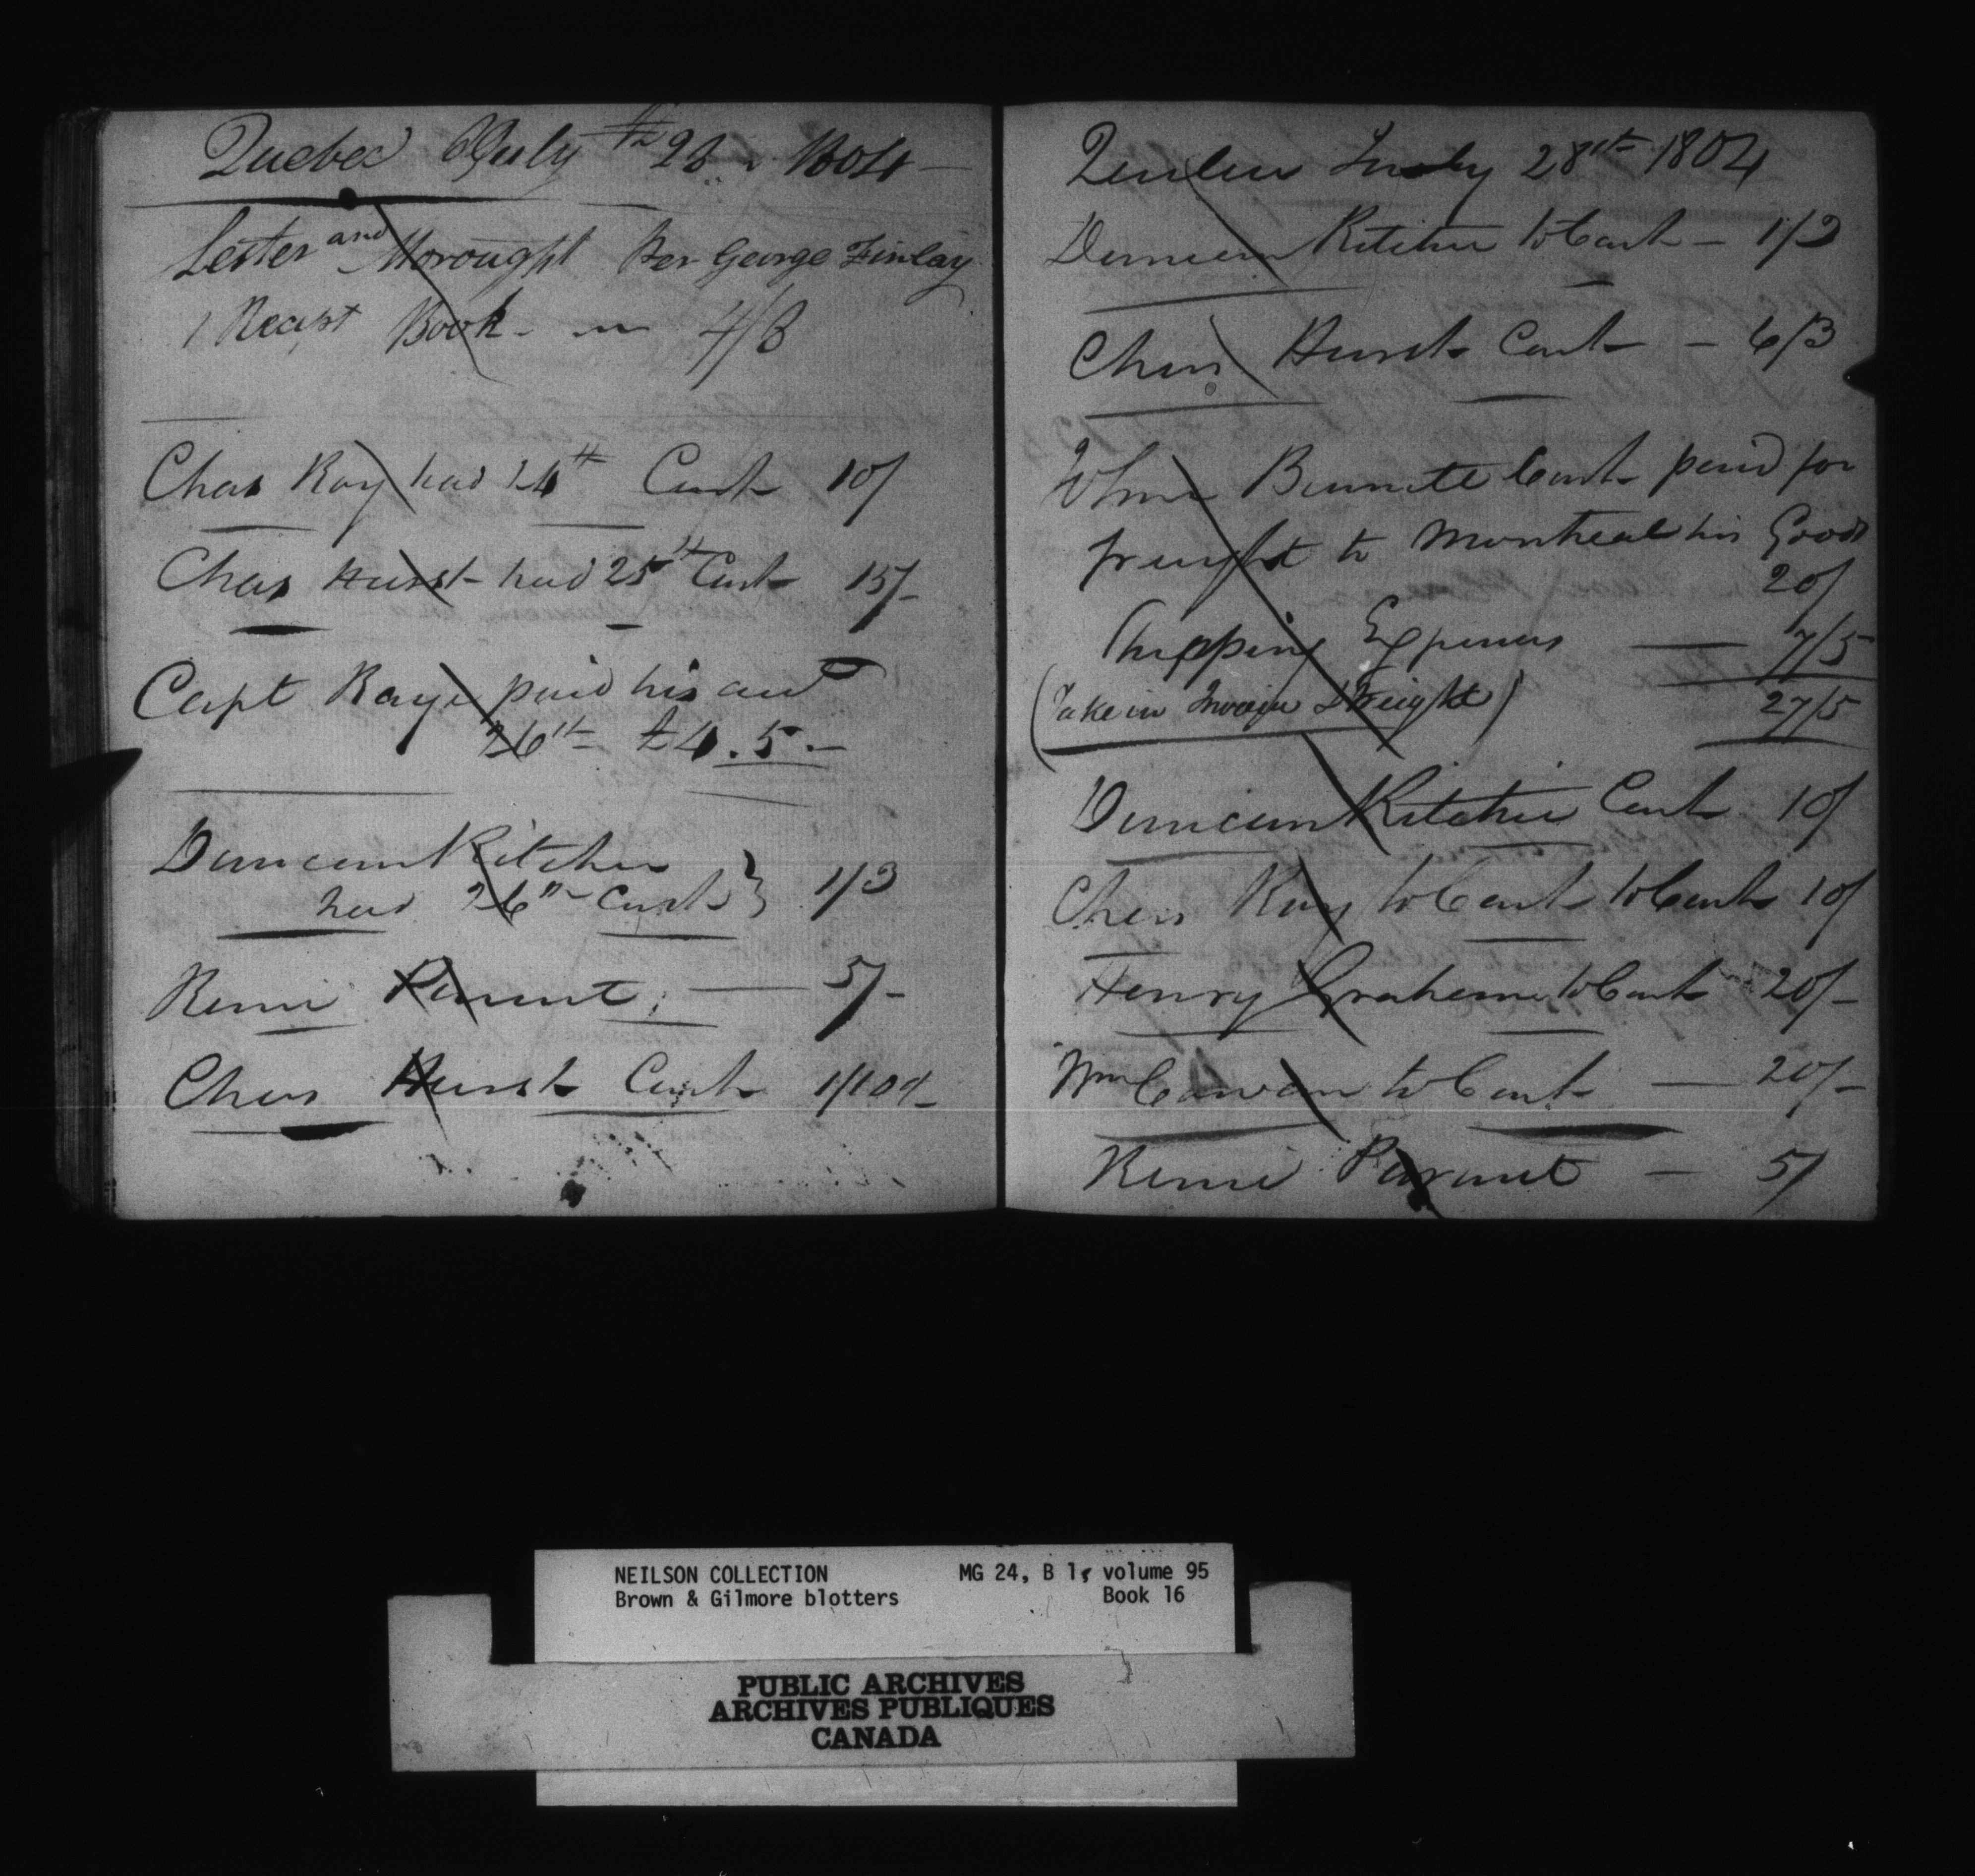 Quebec July th 23 1804
Lester and Morought Per George Finlay
1 Recipt Book - 4/8
Chas Ray had 24th Cash 10/
Chas Hurst had 25th Cash 15/-
Capt Raye paid his acct
26th £4.5.-
Duncan Ritchie
had 26th Cash } 1/3
Remi Parent, — 5/-
Chas Hurst Cash 1/10d-
Quebec July 28th 1804
Duncan Ritchie to Cash - 1/3
Chas Hurst Cash - 6/3
Bennett Cash paid for
freight to Montreal his Goods
20/
Shipping Expences — 7/5
(Take in Invoice Freight) 27/5
Duncan Ritchie Cash 10/
Chas Ray to Cash to Cash 10/
Henry Graham to Cash 20/-
Wm Cowan to Cash — 20/-
Remi Parent - 5/
NEILSON COLLECTION MG 24, B 1, volume 95
Brown & Gilmore blotters Book 16
PUBLIC ARCHIVES
ARCHIVES PUBLIQUES
CANADA